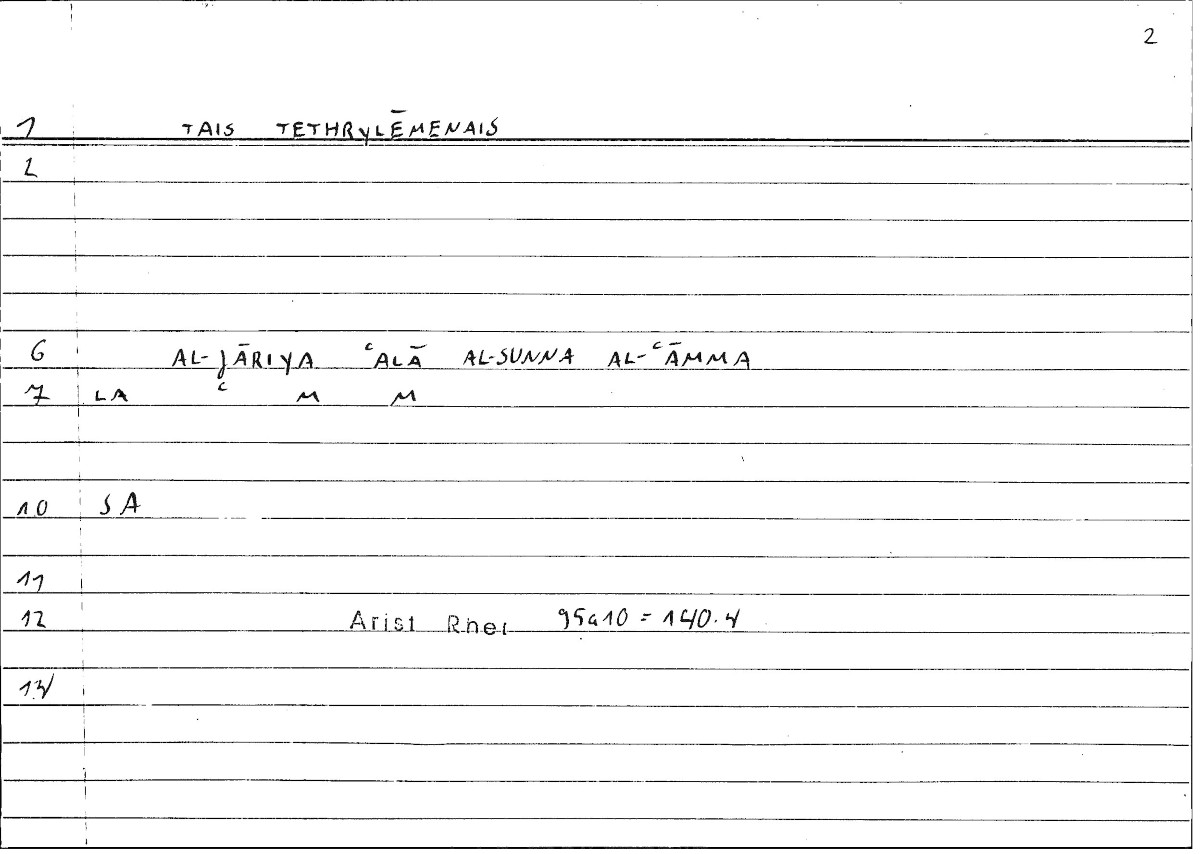 2
1 TAIS TETHRYLĒMENAIS
2
6 AL-JĀRIYA ʿALĀ AL-SUNNA AL-ʿĀMMA
7 LA ʿ M M
10 SA
11
12 Arist Rhet 95a10 = 140.4
13/